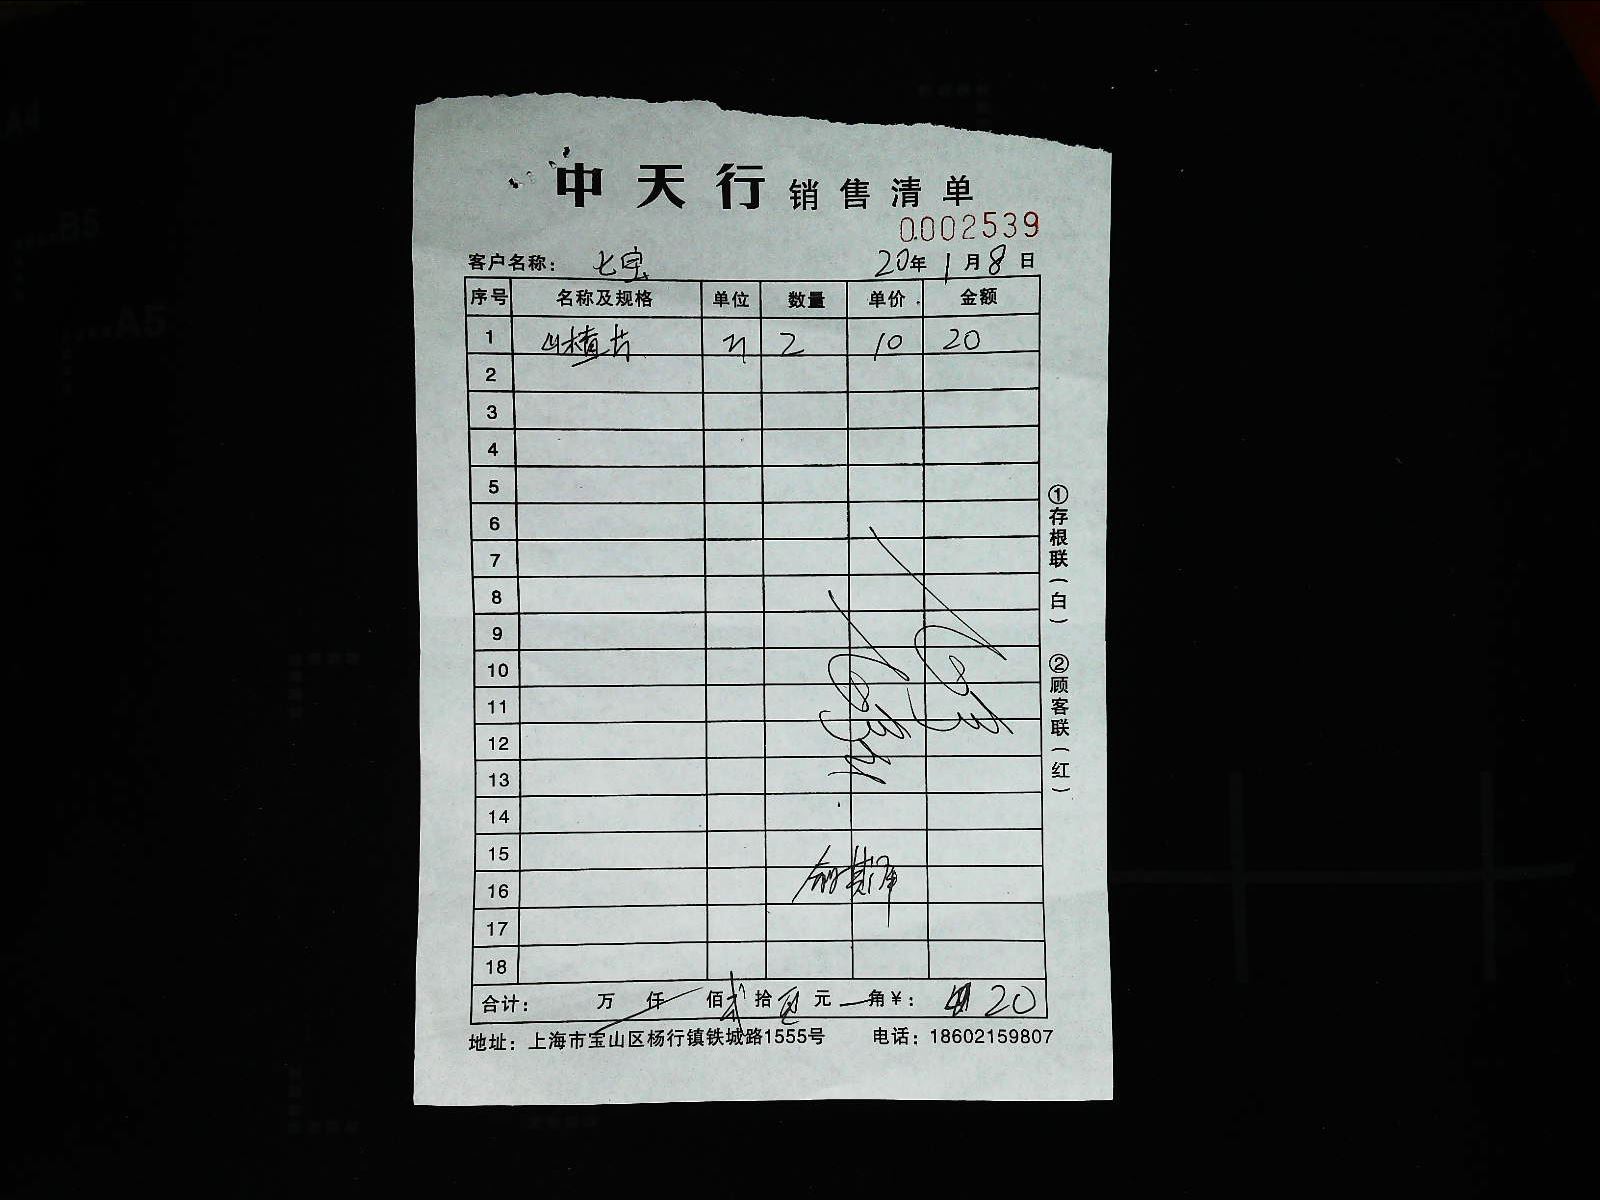 中天行 销售清单
0002539
客户名称： 七宝 20年1月8日
序号 名称及规格 单位 数量 单价 金额
1 山楂片 斤 2 10 20
2
3
4
5
6
7
8
9
10
11
12
13
14
15
16
17
18
合计： 万 仟 佰 贰 拾 元 角 ¥： 20
地址：上海市宝山区杨行镇铁城路1555号 电话：18602159807
①存根联（白） ②顾客联（红）